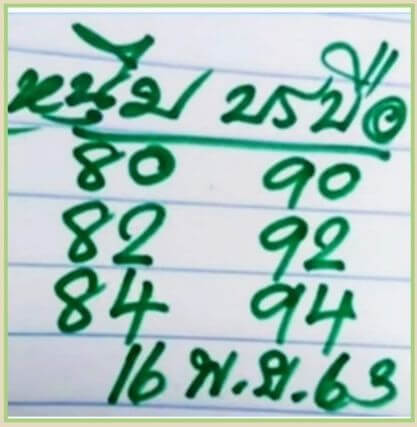 หนุ่ม บรบือ
80 90
82 92
84 94
16 พ.ย. 63